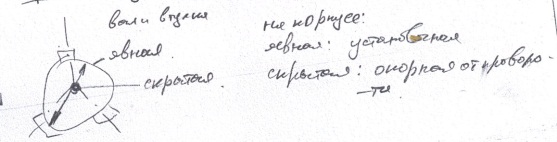 вал и втулка
явная
скрытая
на корпусе:
явная: установочная
скрытая: опорная от проворо-
та.